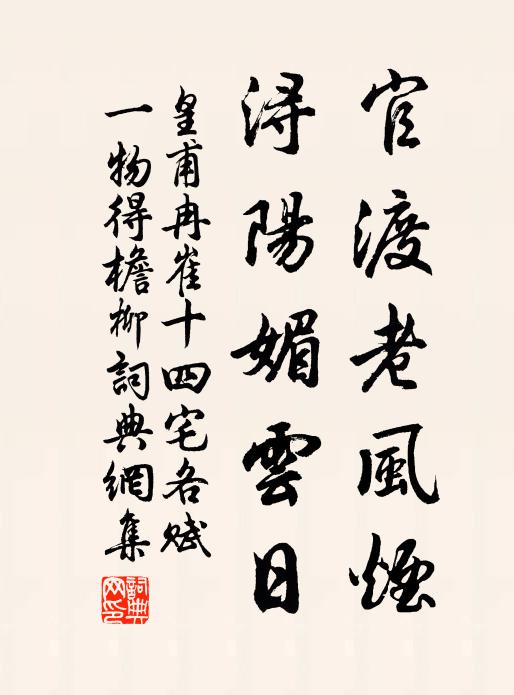 官渡老風煙
潯陽媚雲日
皇甫冉崔十四宅各賦
一物得檐柳詞典網集
詞典
网印